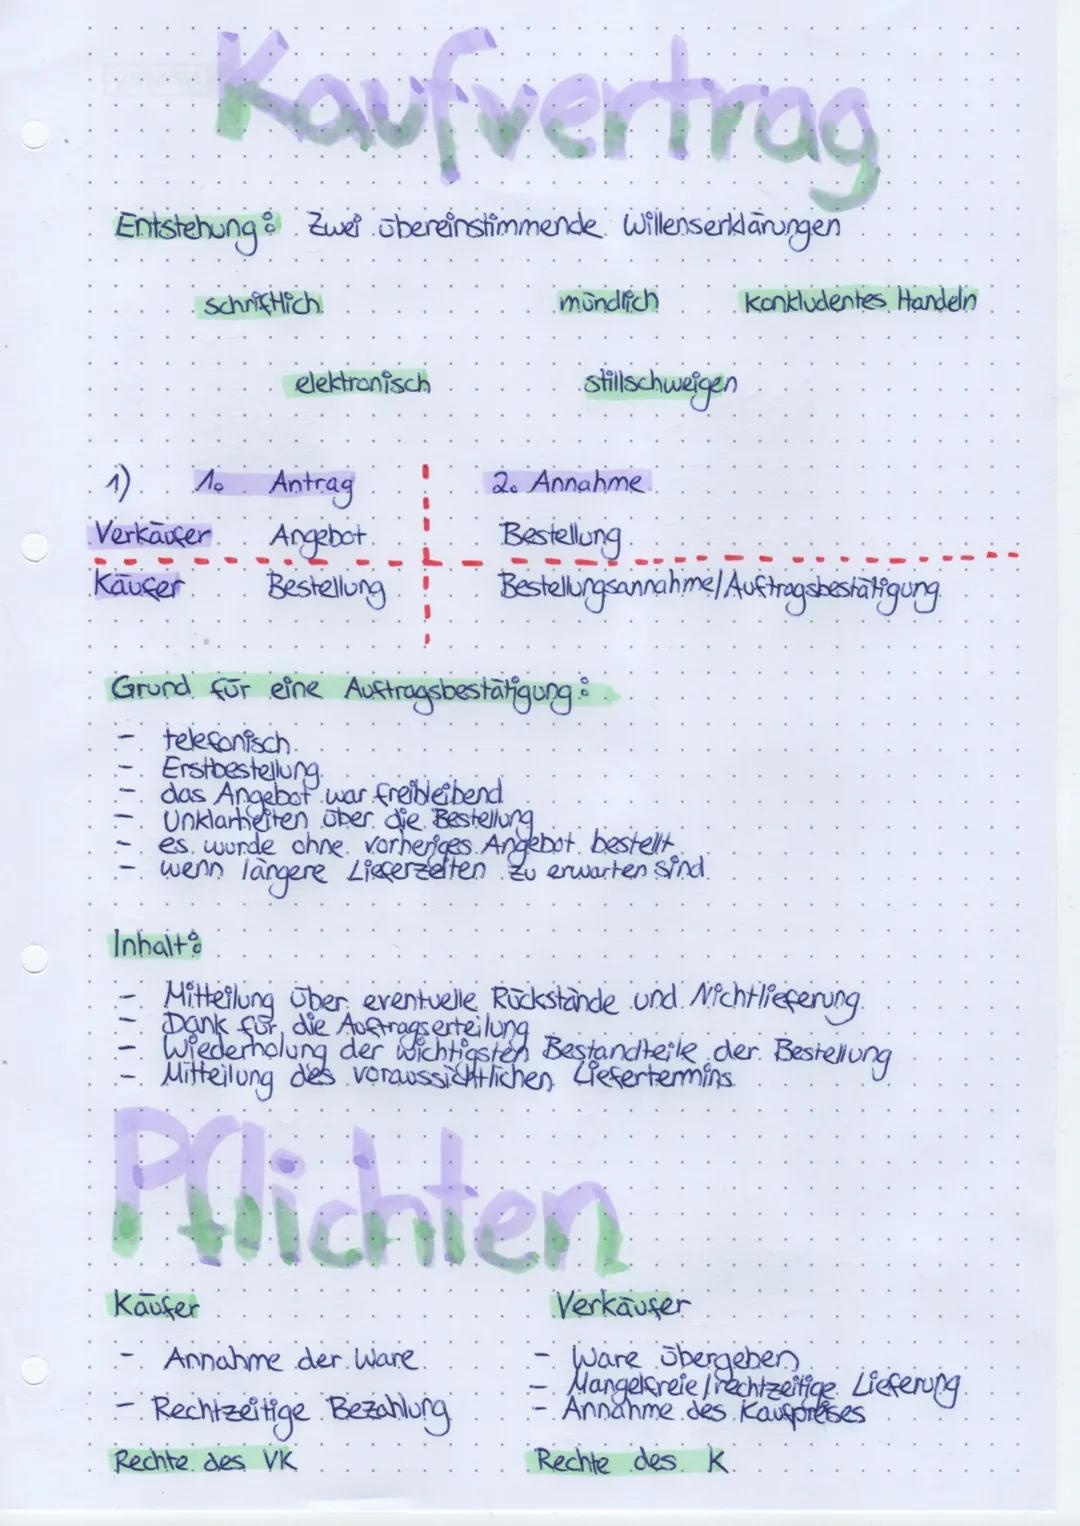 Kaufvertrag
Entstehung: Zwei übereinstimmende Willenserklärungen
schriftlich mündlich Konkludentes Handeln
elektronisch stillschweigen
1) 1. Antrag 2. Annahme
Verkäufer Angebot Bestellung
Käufer Bestellung Bestellungsannahme/Auftragsbestätigung
Grund für eine Auftragsbestätigung:
- telefonisch
- Erstbestellung
- das Angebot war freibleibend
- Unklarheiten über die Bestellung
- es wurde ohne vorheriges Angebot bestellt
- wenn längere Lieferzeiten zu erwarten sind
Inhalt:
- Mitteilung über eventuelle Rückstände und Nichtlieferung
- Dank für die Auftragserteilung
- Wiederholung der wichtigsten Bestandteile der Bestellung
- Mitteilung des voraussichtlichen Liefertermins
Pflichten
Käufer Verkäufer
- Annahme der Ware - Ware übergeben
- Mangelfreie/rechtzeitige Lieferung
- Rechtzeitige Bezahlung - Annahme des Kaufpreises
Rechte des VK Rechte des K